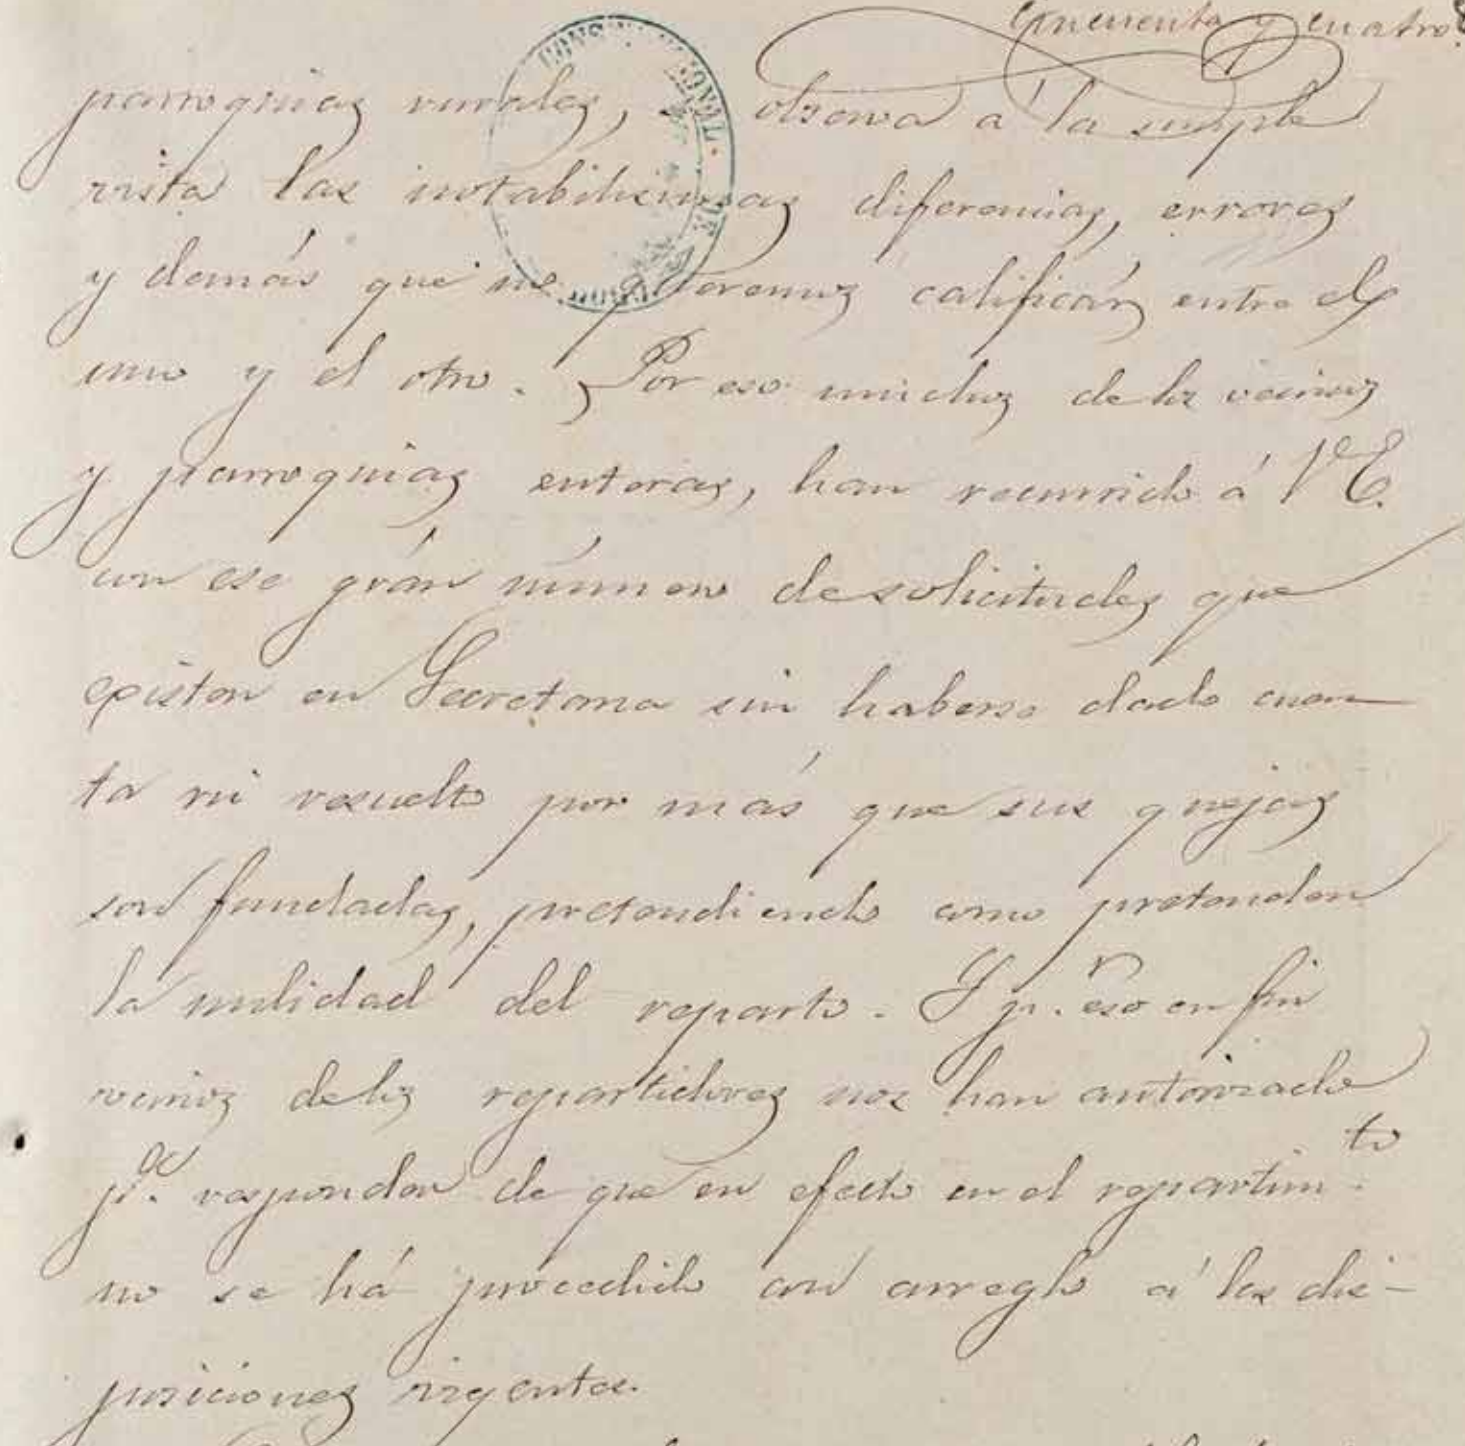 cincuenta y cuatro
parroquias rurales, observa á la simple
vista las notabilisimas diferencias, errores
y demás que no queremos calificár entre el
uno y el otro. Por eso muchos de los vecinos
y parroquias enteras, han recurrido á VE.
con ese grán número de solicitudes que
existen en Secretaria sin haberse dado cuen
ta ni resuelto por más que sus quejas
son fundadas, pretendiendo como pretenden
la nulidad del reparto. Y pr. eso en fin
vecinos de los repartidores nos han autorizado
pª. responder de que en efecto en el repartimto.
no se há procedido con arreglo á las dis-
posiciones vigentes.